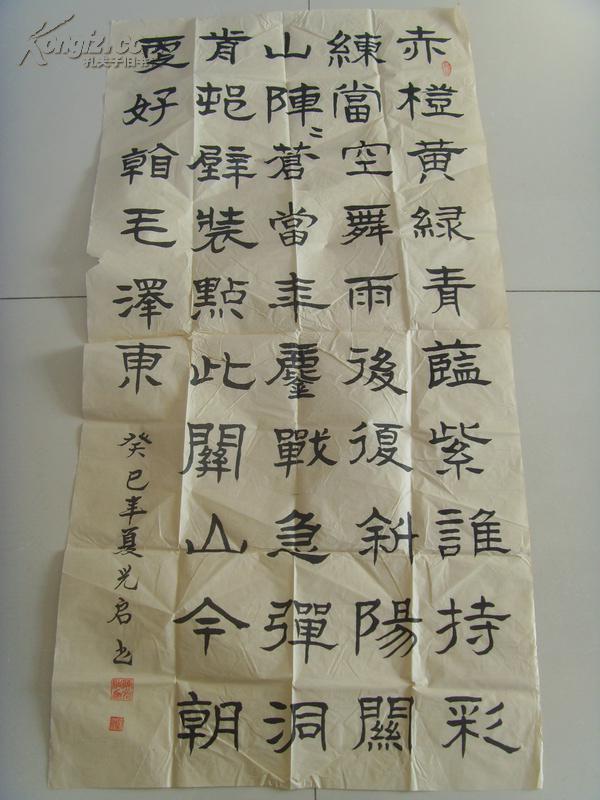 赤橙黄緑青藍紫誰持彩
練當空舞雨後復斜陽關
山陣々蒼當年鏖戰急彈洞
前邨壁裝點此關山今朝
更好看毛澤東
癸巳年夏光启书
Kongfz.com
孔夫子旧书